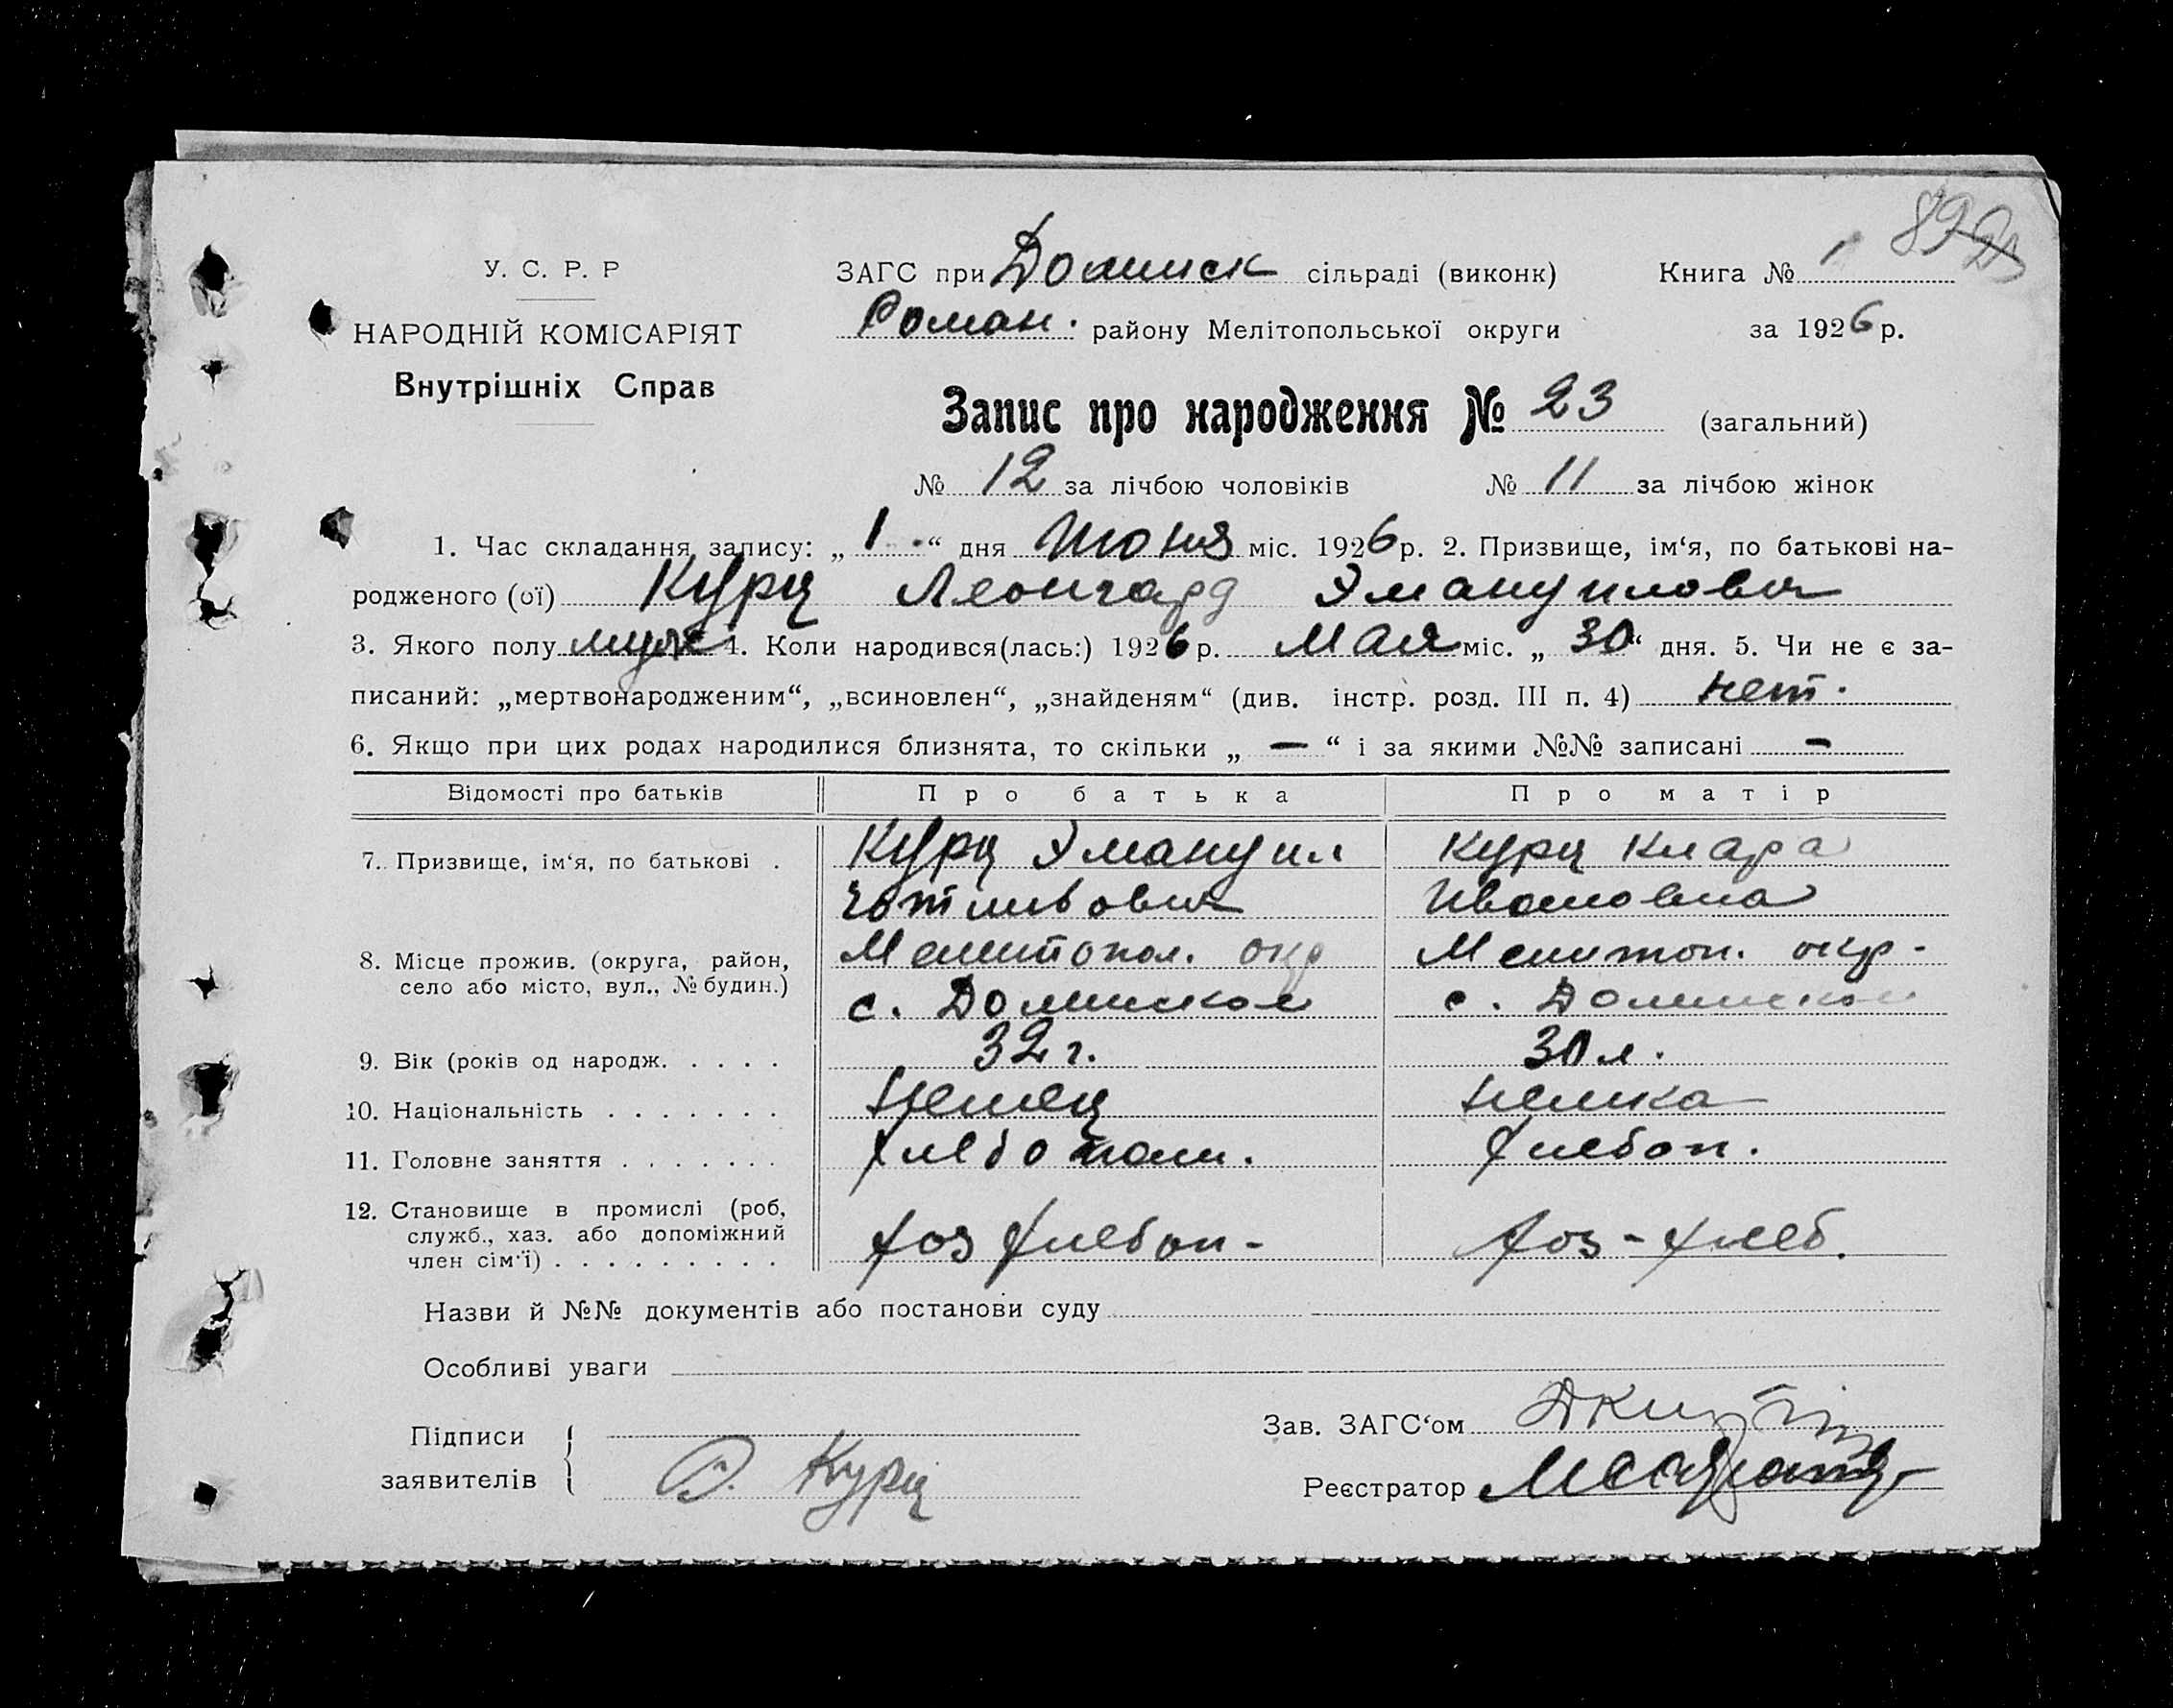 У. С. Р. Р
НАРОДНІЙ КОМІСАРІЯТ
Внутрішніх Справ
ЗАГС при Долинск сільраді (виконк)
Роман. району Мелітопольської округи
Книга № 1
за 1926 р.
Запис про народження № 23 (загальний)
№ 12 за лічбою чоловіків № 11 за лічбою жінок
1. Час складання запису: „ 1 “ дня Июня міс. 1926 р. 2. Призвище, ім‘я, по батькові на-
родженого (ої) Курц Леонгард Эмануилович
3. Якого полу муж 4. Коли народився(лась:) 1926 р. Мая міс. „ 30 “ дня. 5. Чи не є за-
писаний: „мертвонародженим“, „всиновлен“, „знайденям“ (див. інстр. розд. III п. 4) нет.
6. Якщо при цих родах народилися близнята, то скільки „ — “ і за якими №№ записані —
Відомості про батьків Про батька Про матір
7. Призвище, ім‘я, по батькові . Курц Эмануил Курц Клара
Готлибович Ивановна
8. Місце прожив. (округа, район, Мелитопол. окр Мелитоп. окр.
село або місто, вул., № будин.) с. Долинское с. Долинское
9. Вік (років од народж. . . . . 32 г. 30 л.
10. Національність . . . . . . . Немец немка
11. Головне заняття . . . . . . . хлебопаш. хлебоп.
12. Становище в промислі (роб,
служб., хаз. або допоміжний хоз хлебоп - хоз - хлеб.
член сім‘ї) . . . . . . . . .
Назви й №№ документів або постанови суду
Особливі уваги
Підписи
заявителів Э. Курц
Зав. ЗАГС‘ом
Реєстратор